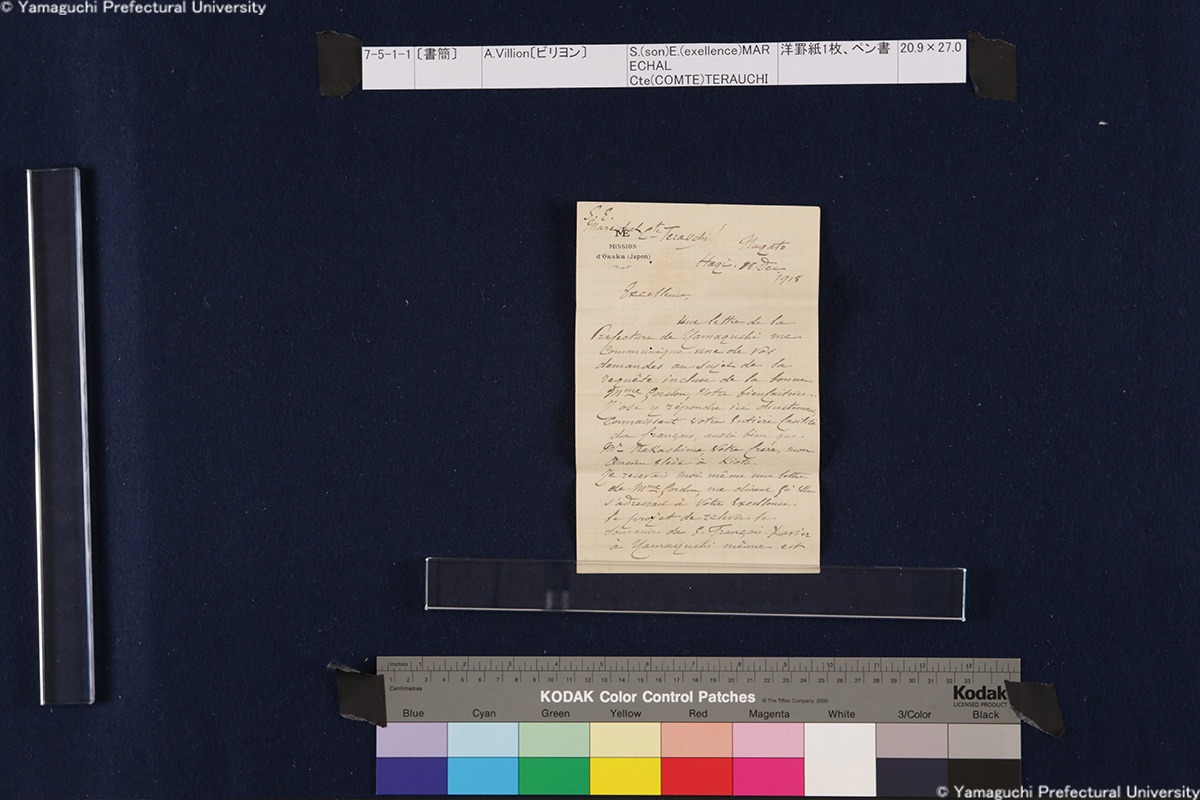 © Yamaguchi Prefectural University
7-5-1-1 〔書簡〕 A.Villion〔ビリヨン〕 S.(son)E.(exellence)MAR 洋罫紙1枚、ペン書 20.9×27.0
ECHAL
Cte(COMTE)TERAUCHI
S. E.
Maréchal Cte Terauchi
ME
MISSION
d'Osaka (Japon)
Nagato
Hagi. Dec
1918
Excellence,
Une lettre de la
Préfecture de Yamaguchi me
communique une de vos
demandes au sujet de la
requête incluse de la bonne
Mme Gordon, votre bienfaitrice.
J'ose y répondre ici
Connaissant votre entière
du français, aussi bien que
Mr Nakashima, votre frère, mon
ancien élève à Kioto.
Je recevais moi même une lettre
de Mme Gordon, me disant qu'elle
s'adressait à Votre Excellence.
Le projet de relever le
souvenir de S. François Xavier
à Yamaguchi même est
Inches 1 2 3 4 5 6 7 8 9 10 11 12 13
Centimetres
KODAK Color Control Patches
© The Tiffen Company, 2000
Kodak
LICENSED PRODUCT
Blue Cyan Green Yellow Red Magenta White 3/Color Black
© Yamaguchi Prefectural University